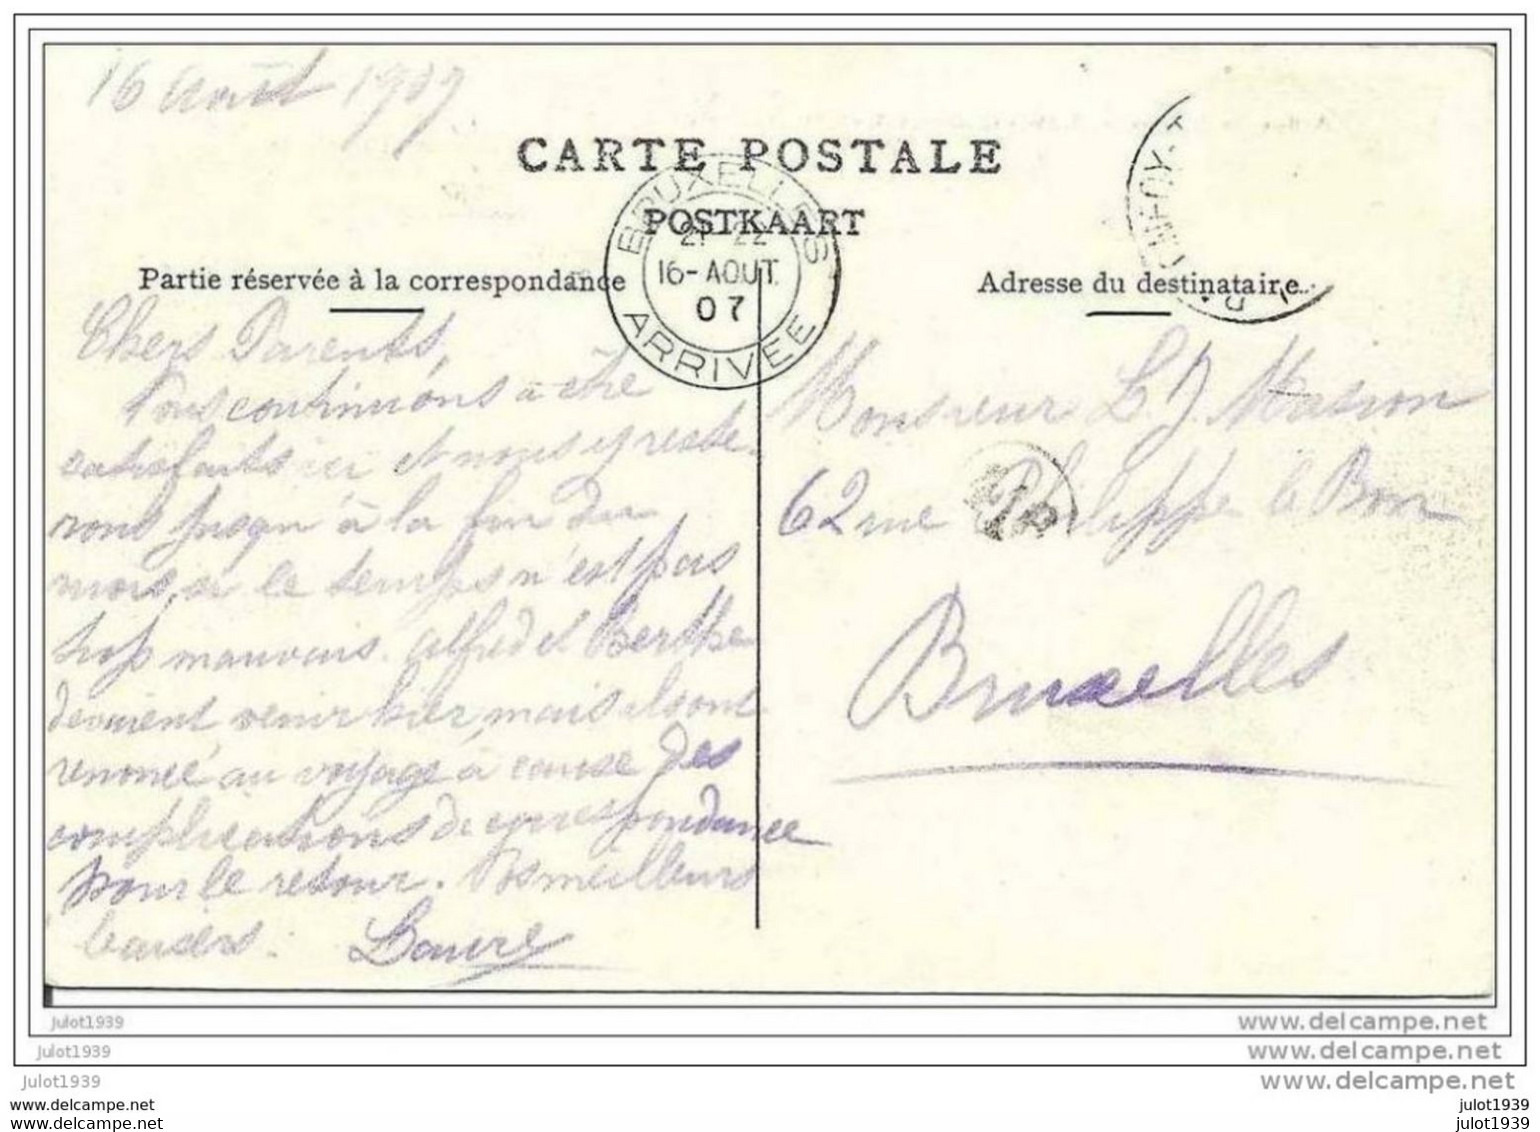 16 Août 1907
CARTE POSTALE
POSTKAART
BRUXELLES
21-22
16-AOUT
07
ARRIVEE
Partie réservée à la correspondance
Adresse du destinataire
Chers Parents,
Nous continuons à être
satisfaits ici et nous y reste-
rons jusqu'à la fin du
mois, si le temps n'est pas
trop mauvais. Alfred et Berthe
devaient venir hier, mais ils ont
renoncé au voyage à cause des
complications de correspondance
pour le retour. Vos meilleurs
baisers. Laure
Monsieur L. J. Masion
62 rue Philippe le Bon
Bruxelles
julot1939
julot1939
julot1939
www.delcampe.net
www.delcampe.net
www.delcampe.net
www.delcampe.net
www.delcampe.net
julot1939
julot1939